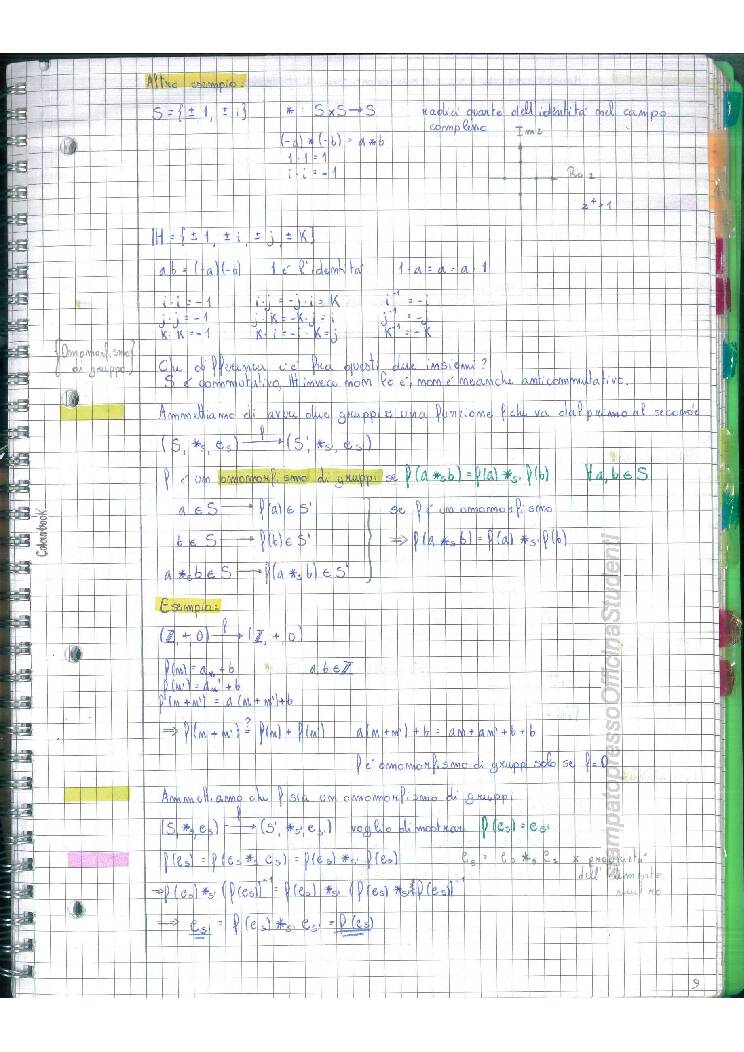 Altro esempio:
S = {± 1, ± i} * : S×S → S radici quarte dell'identità nel campo complesso
(-a) * (-b) = a * b
1 · 1 = 1
i · i = -1
Im z
Re z
z⁴ = 1
IH = {± 1, ± i, ± j, ± K}
ab = (-a)(-b) 1 è l'identità 1 · a = a = a · 1
i · i = -1 i · j = -j · i = K i⁻¹ = -i
j · j = -1 j · K = -K · j = i j⁻¹ = -j
K · K = -1 K · i = -i · K = j K⁻¹ = -K
{Omomorfismo di gruppo}
Che differenza c'è fra questi due insiemi?
S è commutativo, IH invece non lo è, non è neanche anticommutativo.
Ammettiamo di avere due gruppi e una funzione f che va dal primo al secondo
(S, *s, es) f→ (S', *s', es')
f è un omomorfismo di gruppi se f(a *s b) = f(a) *s' f(b) ∀ a, b ∈ S
a ∈ S → f(a) ∈ S' se f è un omomorfismo
b ∈ S → f(b) ∈ S' ⇒ f(a *s b) = f(a) *s' f(b)
a *s b ∈ S → f(a *s b) ∈ S'
Colourbook
Esempio:
(ℤ, + 0) f→ (ℤ, + 0)
f(m) = am + b a, b ∈ ℤ
f(m') = am' + b
f(m + m') = a(m + m') + b
⇒ f(m + m') ?= f(m) + f(m') a(m + m') + b = am + am' + b + b
f è omomorfismo di gruppi solo se b = 0
Ammettiamo che f sia un omomorfismo di gruppi
(S, *s, es) f→ (S', *s', es') voglio dimostrare f(es) = es'
f(es) = f(es *s es) = f(es) *s' f(es) es = es *s es x proprietà dell'elemento neutro
⇒ f(es) *s' (f(es))⁻¹ = f(es) *s' (f(es) *s' (f(es))⁻¹
⇒ es' = f(es) *s' es' = f(es)
StampatopressoOfficinaStudenti
9